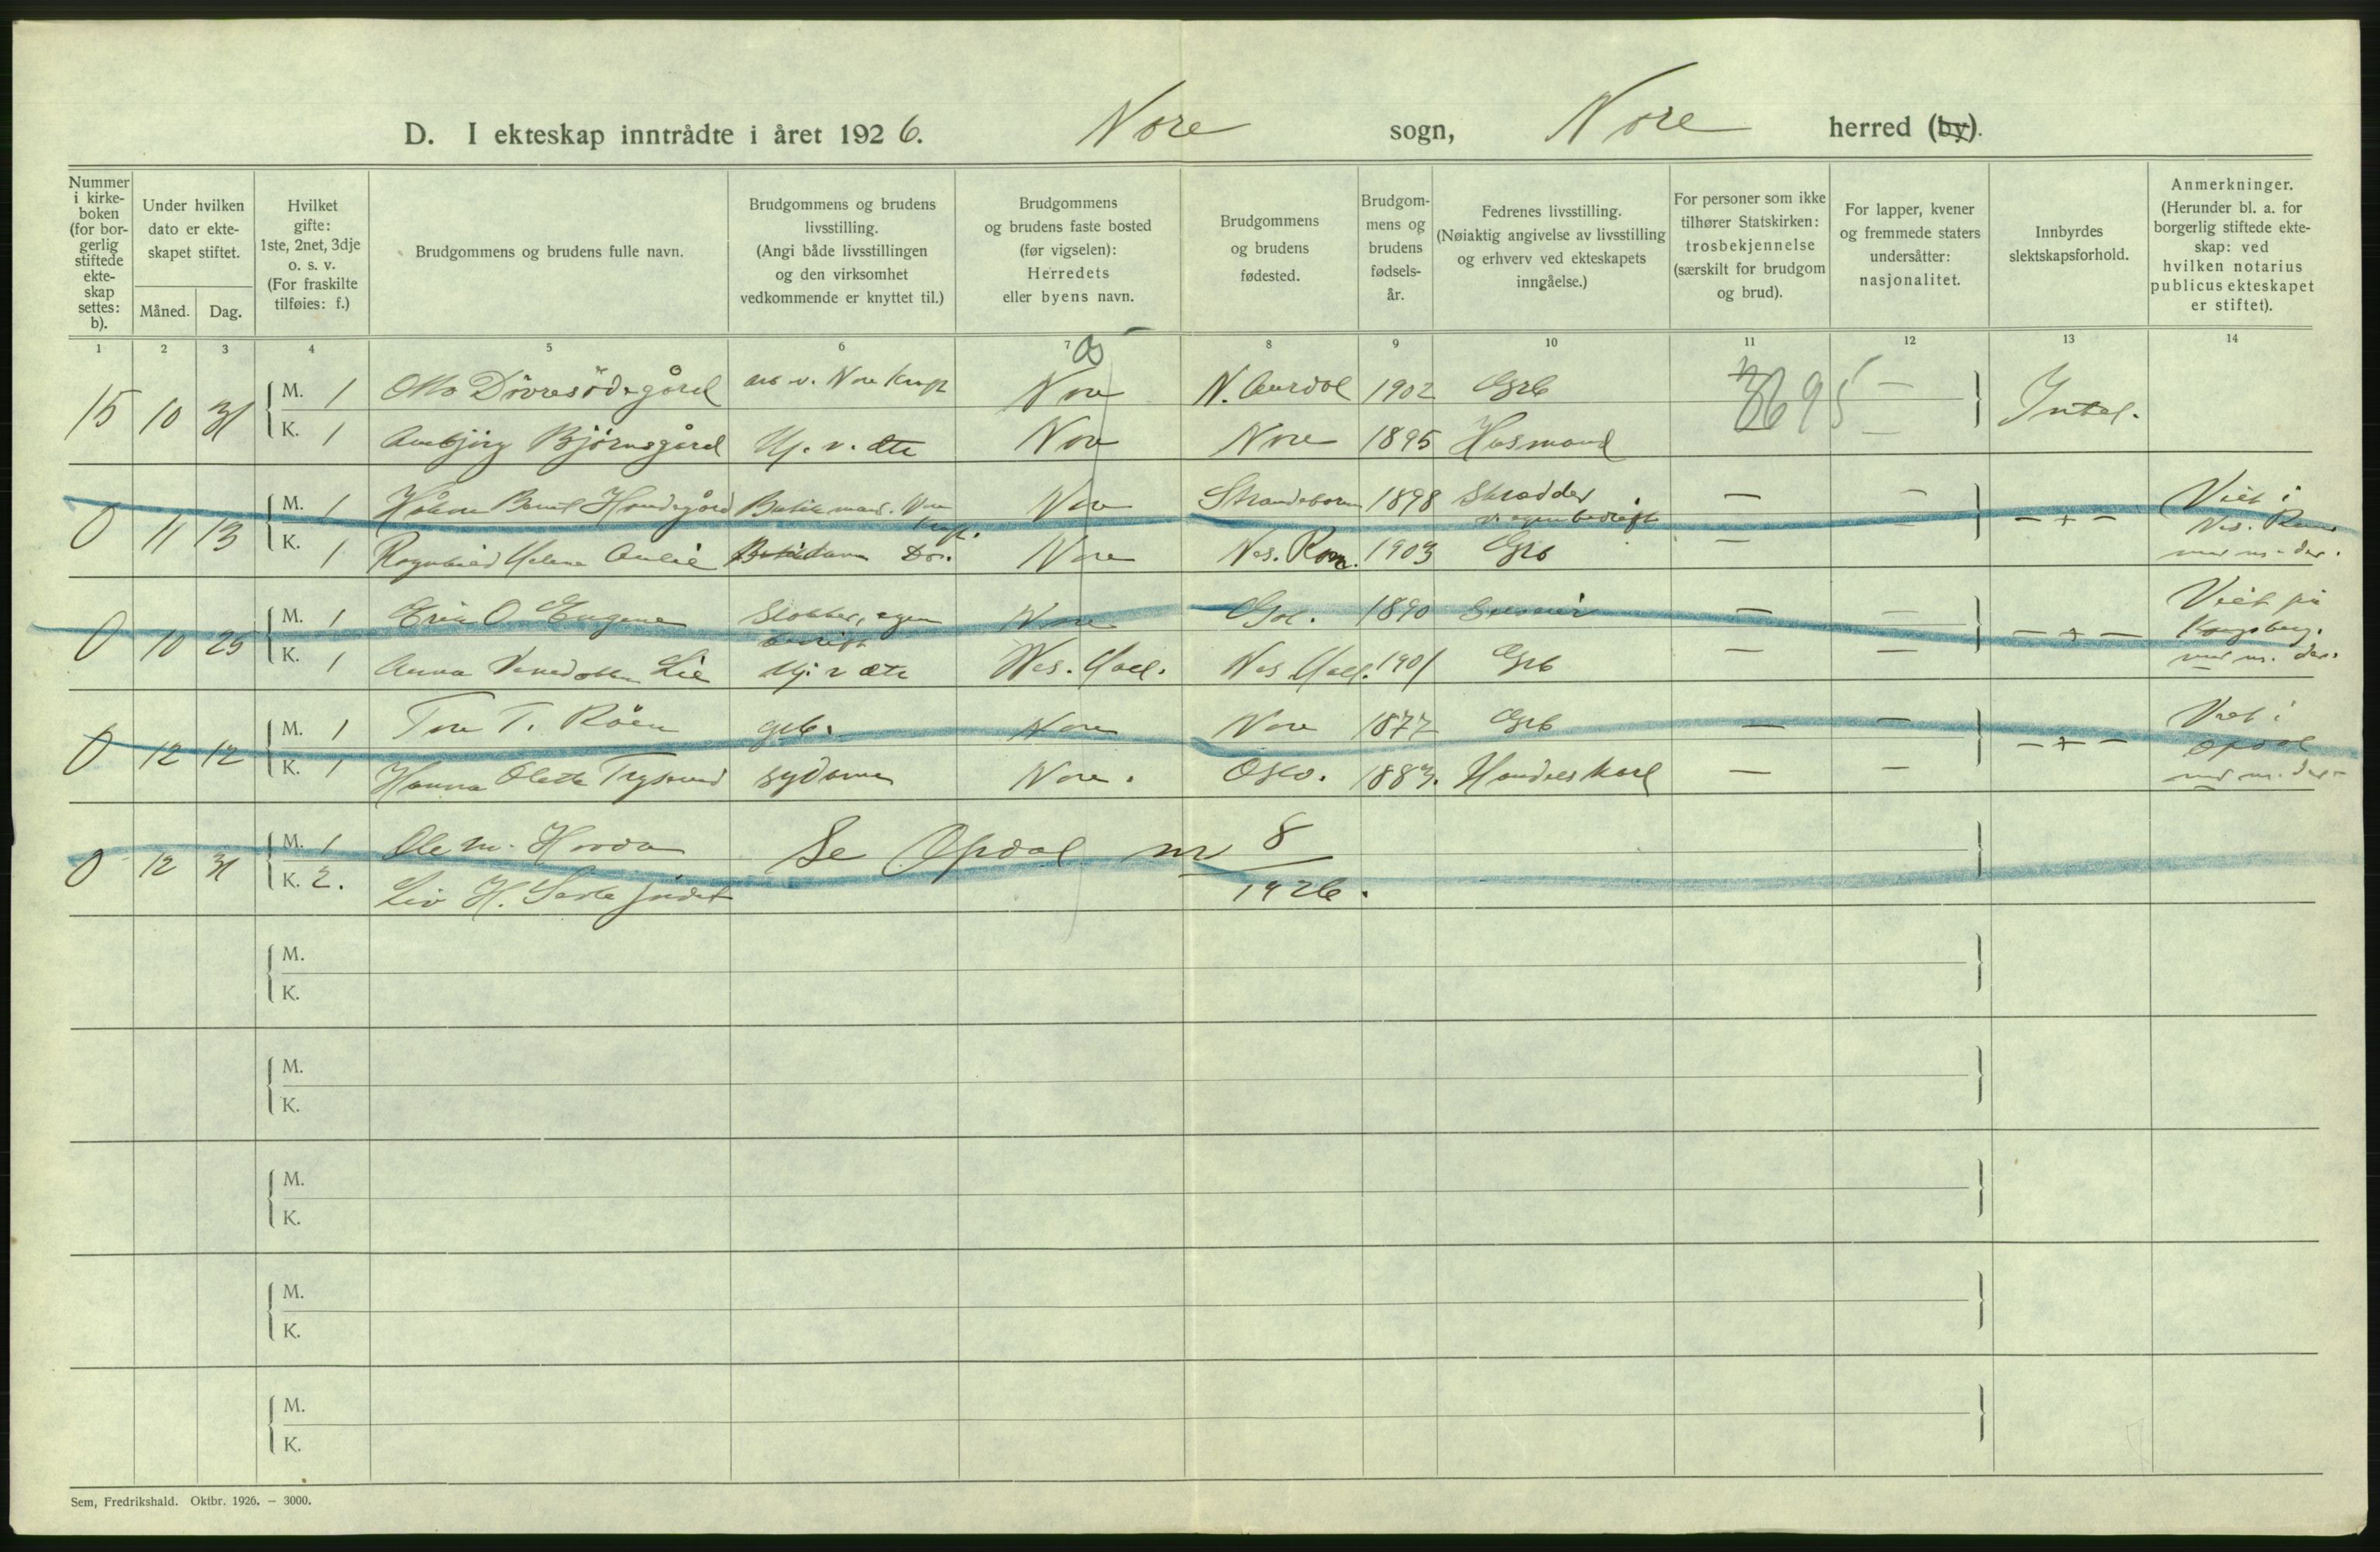 D. I ekteskap inntrådte i året 1926. Nore sogn, Nore herred (by).
Nummer i kirke-boken (for bor-gerlig stiftede ekte-skap settes: b).
Under hvilken dato er ekte-skapet stiftet.
Måned. Dag.
Hvilket gifte: 1ste, 2net, 3dje o. s. v. (For fraskilte tilføies: f.)
Brudgommens og brudens fulle navn.
Brudgommens og brudens livsstilling. (Angi både livsstillingen og den virksomhet vedkommende er knyttet til.)
Brudgommens og brudens faste bosted (før vigselen): Herredets eller byens navn.
Brudgommens og brudens fødested.
Brudgom-mens og brudens fødsels-år.
Fedrenes livsstilling. (Nøiaktig angivelse av livsstilling og erhverv ved ekteskapets inngåelse.)
For personer som ikke tilhører Statskirken: trosbekjennelse (særskilt for brudgom og brud).
For lapper, kvener og fremmede staters undersåtter: nasjonalitet.
Innbyrdes slektskapsforhold.
Anmerkninger. (Herunder bl. a. for borgerlig stiftede ekte-skap: ved hvilken notarius publicus ekteskapet er stiftet).
1 2 3 4 5 6 7 8 9 10 11 12 13 14
15 10 31 M. 1 Otto Dövresödegård arb v. Nore Nore N. Aurdal 1902 Grb 3695 —
K. 1 Bjørnsgård Hj. v. dto Nore Nore 1895 Husmand —
0 11 13 M. 1 Håkon Bernt Nore 1898 Skrædder v. egen bedrift — — — + — Viet i Nes. Rom
K. 1 Ragnhild Helene Dö. Nore Nes. Rom. 1903 Grb —
0 10 25 M. 1 Erik O egen bedrift Nore Gol. 1890 — — — + — Viet på Kongsberg.
K. 1 Anna Lie Hj. v dto Nes. Hall. Nes Hall. 1901 Grb — —
0 12 12 M. 1 Tore T. Röen grb. Nore Nore 1877 Grb — — — + — Viet i Opdal
K. 1 Hanna Olette sydame Nore. Oslo. 1883. Handelskarl — —
0 12 31 M. 1 Ole M. Hovda Se Opdal nr 8
K. 2. Liv H. 1926.
M.
K.
M.
K.
M.
K.
M.
K.
M.
K.
Sem, Fredrikshald. Oktbr. 1926. — 3000.